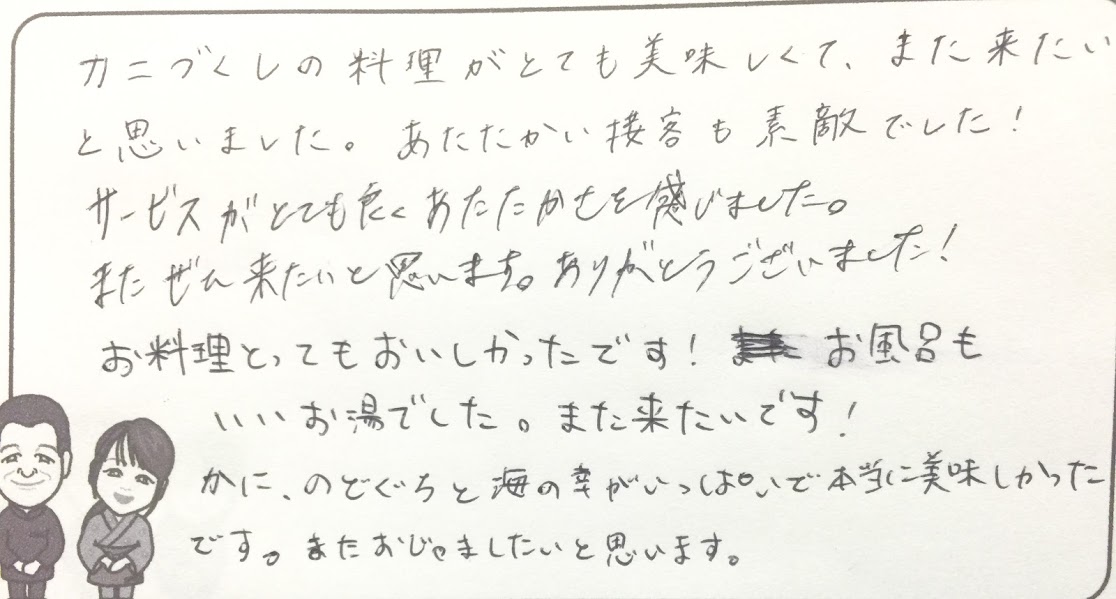 カニづくしの料理がとても美味しくて、また来たい
と思いました。あたたかい接客も素敵でした!
サービスがとても良くあたたかさを感じました。
またぜひ来たいと思います。ありがとうございました!
お料理とってもおいしかったです! お風呂も
いいお湯でした。また来たいです!
かに、のどぐろと海の幸がいっぱいで本当に美味しかった
です。またおじゃましたいと思います。